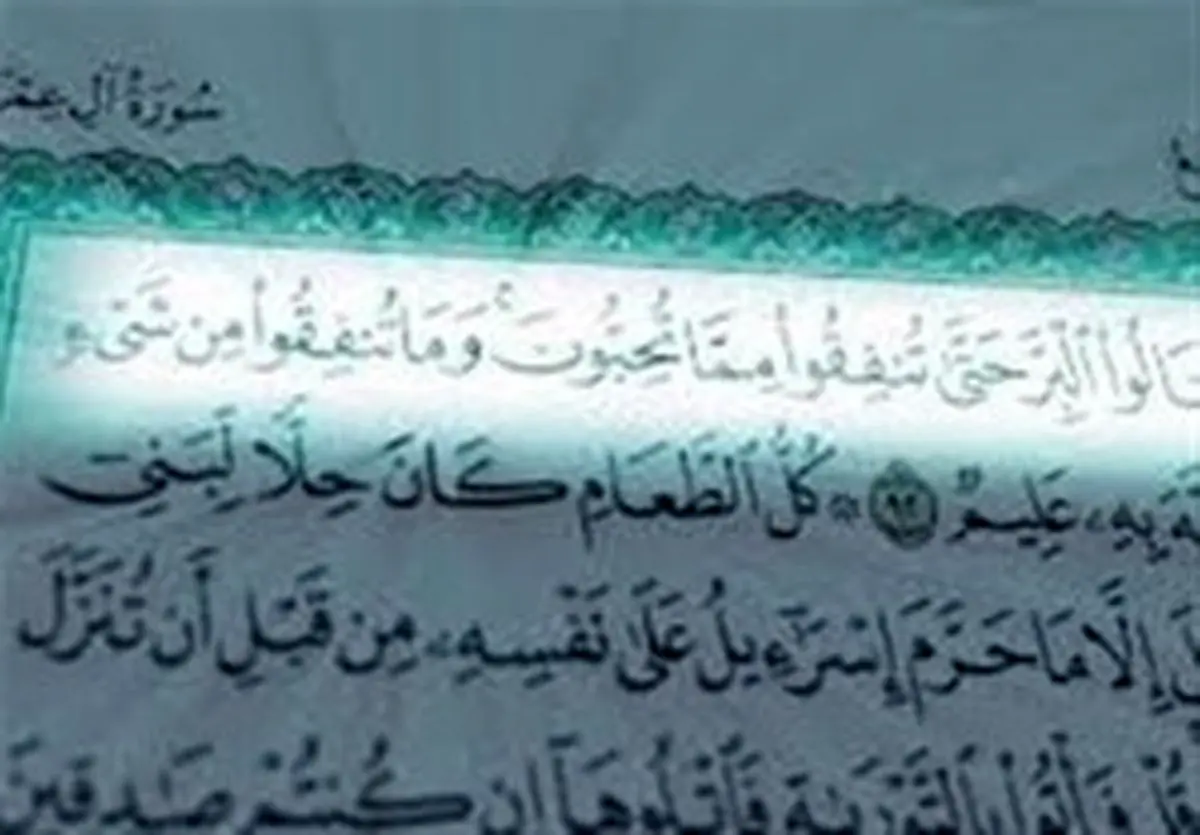 سُورَةُ آلِ عِمْرَ
نَالُوا۟ ٱلْبِرَّ حَتَّىٰ تُنفِقُوا۟ مِمَّا تُحِبُّونَ ۚ وَمَا تُنفِقُوا۟ مِن شَىْءٍ
بِهِۦ عَلِيمٌ ٩٢ ۞ كُلُّ ٱلطَّعَامِ كَانَ حِلًّا لِّبَنِىٓ
إِلَّا مَا حَرَّمَ إِسْرَٰٓءِيلُ عَلَىٰ نَفْسِهِۦ مِن قَبْلِ أَن تُنَزَّلَ
قُلْ فَأْتُوا۟ بِٱلتَّوْرَىٰةِ فَٱتْلُوهَآ إِن كُنتُمْ صَٰدِقِينَ